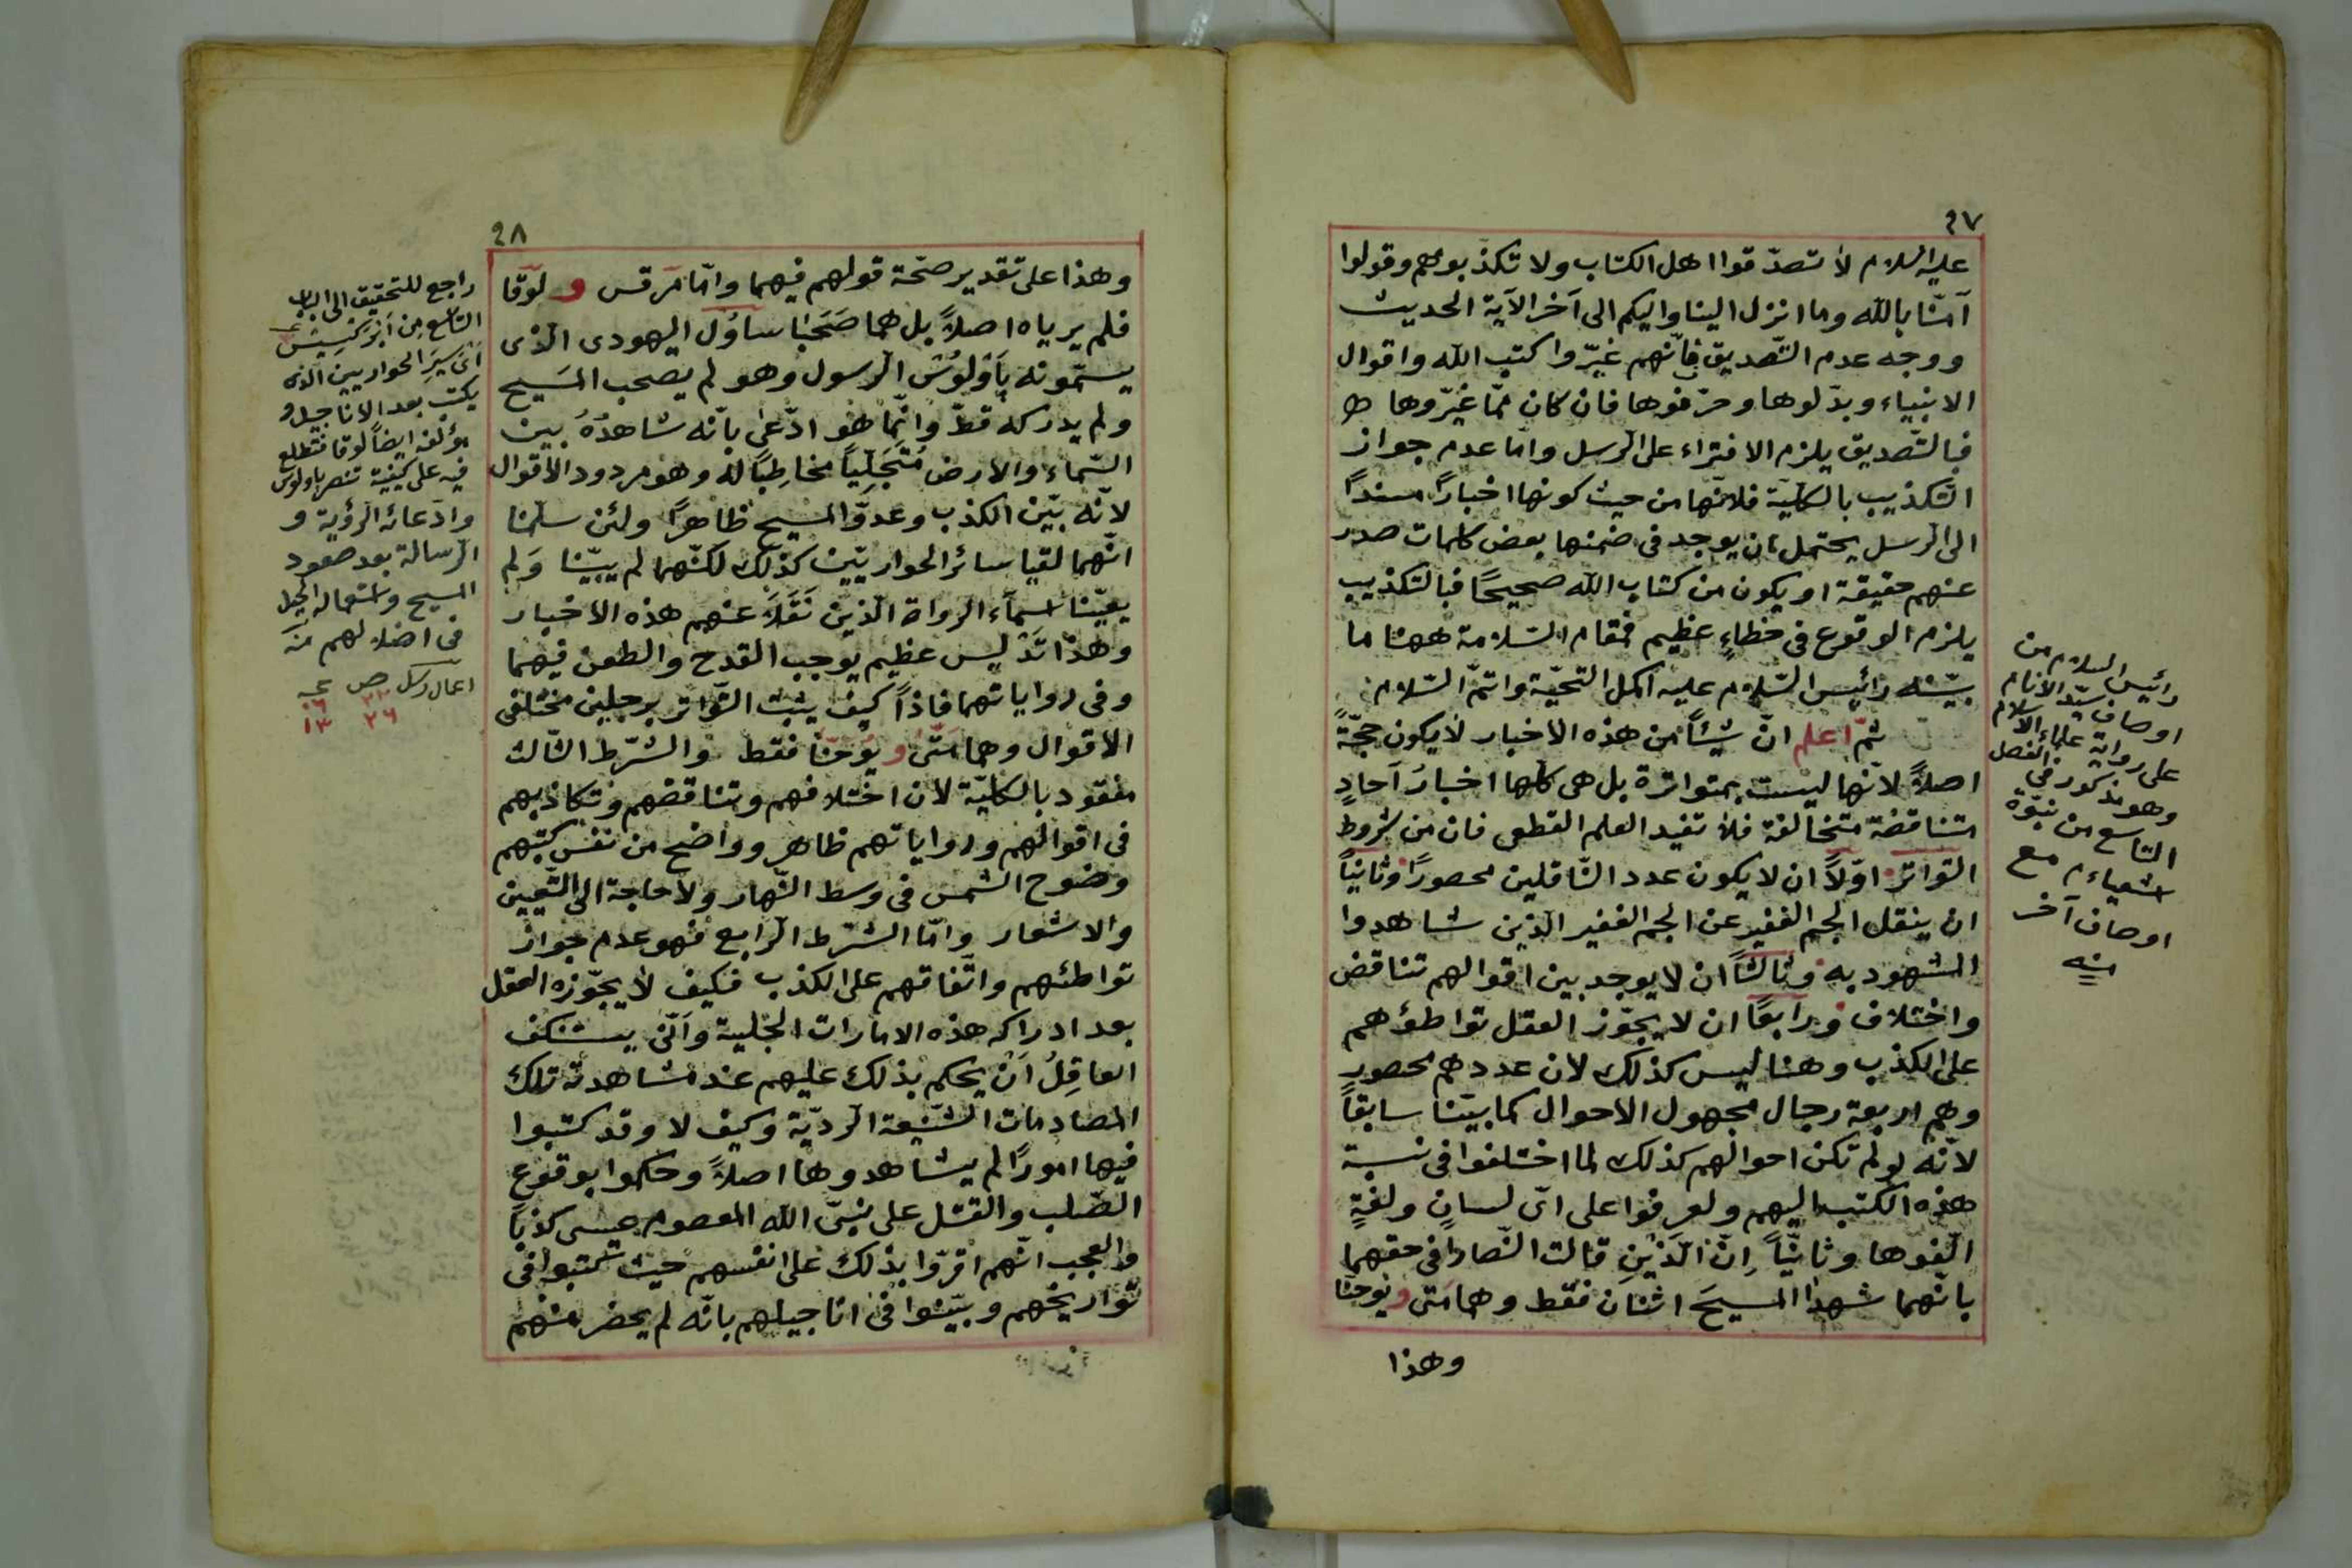 ٤٧
عليه السلام لا تصدّقوا اهل الكتاب ولا تكذّبوهم وقولوا
آمنّا بالله وما انزل الينا واليكم الى آخر الآية الحديث
ووجه عدم التّصديق فانّهم غيّروا كتب الله واقوال
الانبياء وبدّلوها وحرّفوها فان كان ممّا غيّروها
فبالتّصديق يلزم الافتراء على الرسل وامّا عدم جواز
التّكذيب بالكليّة فلانّها من حيث كونها اخبارًا مسندًا
الى الرسل يحتمل ان يوجد فى ضمنها بعض كلمات صدر
عنهم حقيقة او يكون من كتاب الله صحيحًا فبالتكذيب
يلزم الوقوع فى خطاءٍ عظيم فمقام السّلامة ههنا ما
بيّنه رائيس السّلام عليه اكمل التحيّة واتمّ السّلام
ثمّ اعلم انّ شيئًا من هذه الاخبار لا يكون حجّةً
اصلاً لانّها ليست بمتواترة بل هى كلّها اخبارُ آحادٍ
متناقضة متخالفة فلا تفيد العلم القطعى فان من شروط
التواتر اوّلاً ان لا يكون عدد النّاقلين محصورًا وثانيًا
ان ينقل الجم الغفير عن الجم الغفير الّذين شاهدوا
المشهود به وثالثًا ان لا يوجد بين اقوالهم تناقض
واختلاف ورابعًا ان لا يجوّز العقل تواطؤهم
على الكذب وهنا ليس كذلك لان عددهم محصور
وهم اربعة رجال مجهول الاحوال كما بيّنا سابقًا
لانّه لو لم تكن احوالهم كذلك لما اختلفوا فى نسبة
هذه الكتب اليهم ولعرفوا على اىّ لسانٍ ولغةٍ
الّفوها وثانيًّا إنّ الّذَيْنِ قالت النّصارا فى حقهما
بانّهما شهدا المسيحَ اثنان فقط وهما متى ويوحنّا
وهذا
رائيس السلام من
اوصاف سيّد الانام
على رواية علماء الاسلام
وهو مذكور فى الفصل
التاسع من نبوّة
اشعياء م مع
اوصاف آخر
منه
٤٨
وهذا على تقدير صحّة قولهم فيهما وامّا مَرقس ولُوقا
فلم يرياه اصلاً بل هما صَحَبَا ساؤل اليهودى الّذى
يسمّونه بَاَوْلُوسْ الرسول وهو لم يصحب المَسيح
ولم يدركه قطّ وانّما هو ادّعى بانّه شاهدُهُ بين
السّماء والارض مُتَجَلِّيًا مخاطِبًا له وهو مردود الاقوال
لانّه بيّن الكذب وعدوّ المسيح ظاهرًا ولئن سلّمنا
انّهما لقيا سائر الحواريّين كذلك لكنّهما لم يبيّنا وَلم
يعيّنا اسمآء الرواة الّذين نَقَلاَ عنهم هذه الاخبار
وهذا تَدْليس عظيم يوجب القدح والطعن فيهما
وفى رواياتهما فاذاً كيف يثبت التّواتر برجلين مختلفى
الاقوال وهما متّى ويُوحنّا فقط والشّرط الثّالث
مفقود بالكليّة لان اختلافهم وتناقضهم وتكاذبهم
فى اقوالهم ورواياتهم ظاهر وواضح من نفس كتبهم
وضوح الشمس فى وسط النّهار ولا حاجة الى التّعيين
والاشعار وامّا الشرط الرابع فهو عدم جواز
تواطئهم واتّفاقهم على الكذب فكيف لا يجوّزه العقل
بعد ادراكه هذه الامارات الجلية وَاَنّى يستنكف
العاقِلُ اَنْ يحكم بذلك عليهم عند مشاهدته تلك
المصادمات الشّنيعة الرديّة وكيف لا وقد كتبوا
فيها امورًا لم يشاهدوها اصلاً وحكموا بوقوع
الصّلب والقتل على نبىّ الله المعصوم عيسى كذبًا
والعجب انّهم اقرّوا بذلك على انفسهم حيث كتبوا فى
تواريخهم وبيّنوا فى اناجيلهم بانّه لم يحضر منهم
راجع للتحقيق الى الباب
التاسع من اَبْرَكْسِيسْ
اَىْ سِيَرِ الحواريين الذى
يكتب بعد الاناجيل و
مؤلفه ايضًا لوقا فتطلع
فيه على كيفية تنصر باولوس
وادّعائه الرؤية و
الرسالة بعد صعود
المسيح واستعماله الحيل
فى اضلالهم منه
اعمال رسل ص